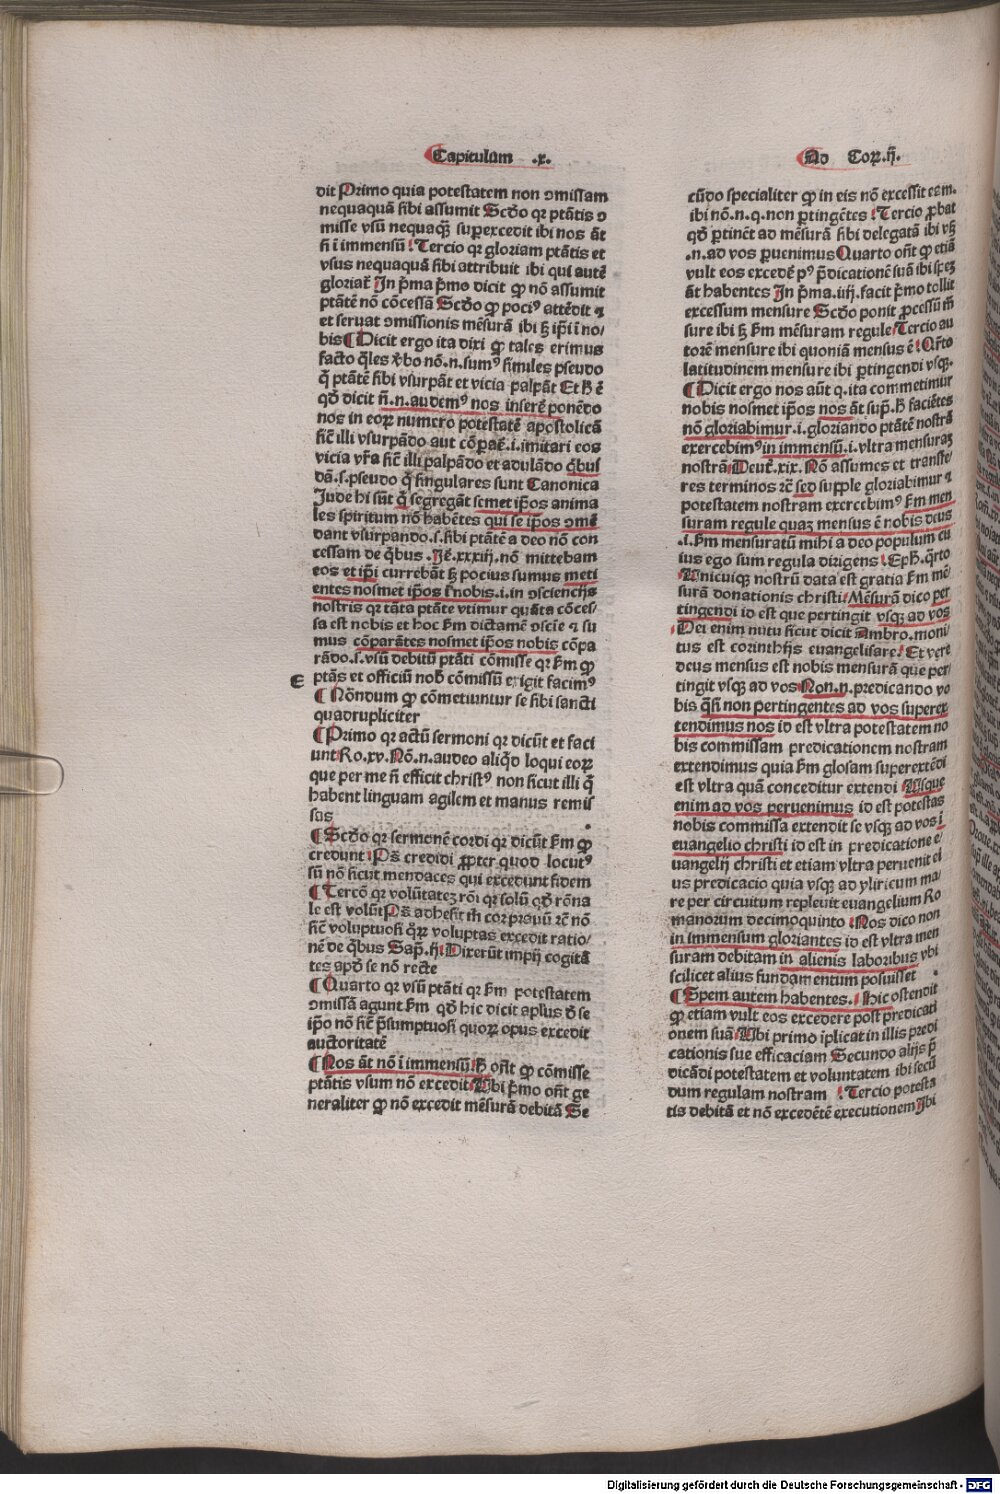 Capitulum .x.
dit Primo quia potestatem non ꝯmissam
nequaquā sibi assumit Scḋo qꝛ ptātis ꝯ
misse vsū nequaqꝫ superexcedit ibi nos āt
sī ī immensū Tercio qꝛ gloriam ptātis et
vsus nequaquā sibi attribuit ibi qui autē
gloriat᷑ In p̄ma p̄mo dicit ꝙ nō assumit
ptātē nō cōcessā Scḋo ꝙ poci⁹ attēdit ⁊
et seruat ꝯmissionis mēsurā ibi hꝫ ip̄i ī no/
bis ¶ Dicit ergo ita dixi ꝙ tales erimus
facto q̄les v̄bo nō.n.sum⁹ similes pseudo
q̄ ptātē sibi vsurpāt et vicia palpāt Et ħ ē
qḋ dicit n̄.n.audem⁹ nos inserē ponēdo
nos in eoꝝ numero potestatē apostolicā
sic̄ illi vsurpādo aut cōparē.i.imitari eos
vicia vr̄a sic̄ illi palpādo et adulādo q̄busl
dā.s.pseudo q̄ singulares sunt Canonica
Jude hi sūt q̄ segregāt semet ip̄os anima
les spiritum nō habētes qui se ip̄os ꝯmē
dant vsurpando.s.sibi ptātē a deo nō con
cessam de q̄bus .Je.xxxiij.nō mittebam
eos et ip̄i currebāt hꝫ pocius sumus meti
entes nosmet ip̄os ī nobis.i.in ꝯsciencijs
nostris qꝛ tāta ptāte vtimur quāta cōces/
sa est nobis et hoc ẜm dictamē ꝯscīe ⁊ su
mus cōparātes nosmet ip̄os nobis cōpa
rādo.s.vsū debitū ptāti cōmisse qꝛ ẜm ꝙ
E ptās et officiū nob̄ cōmissū exigit facim⁹
¶ Nōndum ꝙ cōmetiuntur se sibi sancti
quadrupliciter
¶ Primo qꝛ actū sermoni qꝛ dicūt et faci
unt Ro.xv.Nō.n.audeo aliqḋ loqui eoꝝ
que per me n̄ efficit christ⁹ non sicut illi q̄
habent linguam agilem et manus remis
sas
¶ Scḋo qꝛ sermonē cordi qꝛ dicūt ẜm ꝙ
credunt Ps̄ credidi ꝓpter quod locut⁹
sū nō sicut mendaces qui excedunt fidem
¶ Tercō qꝛ volūtateꝫ rōi qꝛ solū qḋ rōna
le est volūt Ps̄ adhesit m̄ cor prauū rc̄ nō
sic̄ voluptuosi q̄ꝝ voluptas excedit ratio/
nē de q̄bus Sap̄.ij Dixerūt impij cogitā
tes apḋ se nō recte
¶ Quarto qꝛ vsū ptāti qꝛ ẜm potestatem
ꝯmissā agunt ẜm qḋ hic dicit aplus ḋ se
ip̄o nō sic̄ p̄sumptuosi quoꝝ opus excedit
auctoritatē
¶ Nos āt nō ī immensū ħ on̄t ꝙ cōmisse
ptātis vsum nō excedit Vbi p̄mo on̄t ge
neraliter ꝙ nō excedit mēsurā debitā Se
Ad Coꝝ.ij.
cūdo specialiter ꝙ in eis nō excessit eam.
ibi nō.n.q.non ꝑtingētes Tercio ꝓbat
qḋ ꝑtinēt ad mēsurā sibi delegatā ibi vsqꝫ
.n.ad vos ꝑuenimus Quarto on̄t ꝙ etiā
vult eos excedē p⁹ p̄dicationē suā ibi speꝫ
āt habentes In p̄ma.iiij.facit p̄mo tollit
excessum mensure Scḋo ponit ꝓcessū m̄
sure ibi hꝫ ẜm mēsuram regule Tercio au
torē mensure ibi quoniā mensus ē Qr̄to
latitudinem mensure ibi ꝑtingendi vsqꝫ.
¶ Dicit ergo nos aūt q.ita commetimur
nobis nosmet ip̄os nos āt sup̄.ħ faciētes
nō gloriabimur.i.gloriando ptātē nostrā
exercebim⁹ in immensū.i.vltra mensuraꝫ
nostrā Deut̄.xix.Nō assumes et transfe/
res terminos rc̄ sed supple gloriabimur ⁊
potestatem nostram exercebim⁹ ẜm men
suram regule quaꝫ mensus ē nobis deus
.i.ẜm mensuratū mihi a deo populum cu
ius ego sum regula dirigens Eph.q̄rto
Vnicuiqꝫ nostrū data est gratia ẜm mē
surā donationis christi Mēsurā dico per
tingendi id est que pertingit vsqꝫ ad vos
Dei enim nutu sicut dicit Ambro.moni/
tus est corinthijs euangelisare Et vere
deus mensus est nobis mensurā que per/
tingit vsqꝫ ad vos Non.n.predicando vo
bis q̄si non pertingentes ad vos superex
tendimus nos id est vltra potestatem no
bis commissam predicationem nostram
extendimus quia ẜm glosam superextēdi
est vltra quā conceditur extendi Vsque
enim ad vos peruenimus id est potestas
nobis commissa extendit se vsqꝫ ad vos ī
euangelio christi id est in predicatione e/
uangelij christi et etiam vltra peruenit ei
us predicacio quia vsqꝫ ad yliricum ma/
re per circuitum repleuit euangelium Ro
manorum decimoquinto Nos dico non
in immensum gloriantes id est vltra men
suram debitam in alienis laboribus vbi
scilicet alius fundamentum posuisset
¶ Spem autem habentes. Hic ostendit
ꝙ etiam vult eos excedere post predicati
onem suā Vbi primo īplicat in illis predi
cationis sue efficaciam Secundo alijs p̄
dicādi potestatem et voluntatem ibi secū
dum regulam nostram Tercio potesta
tis debitā et nō excedētē executionem Ibi
Digitalisierung gefördert durch die Deutsche Forschungsgemeinschaft - DFG